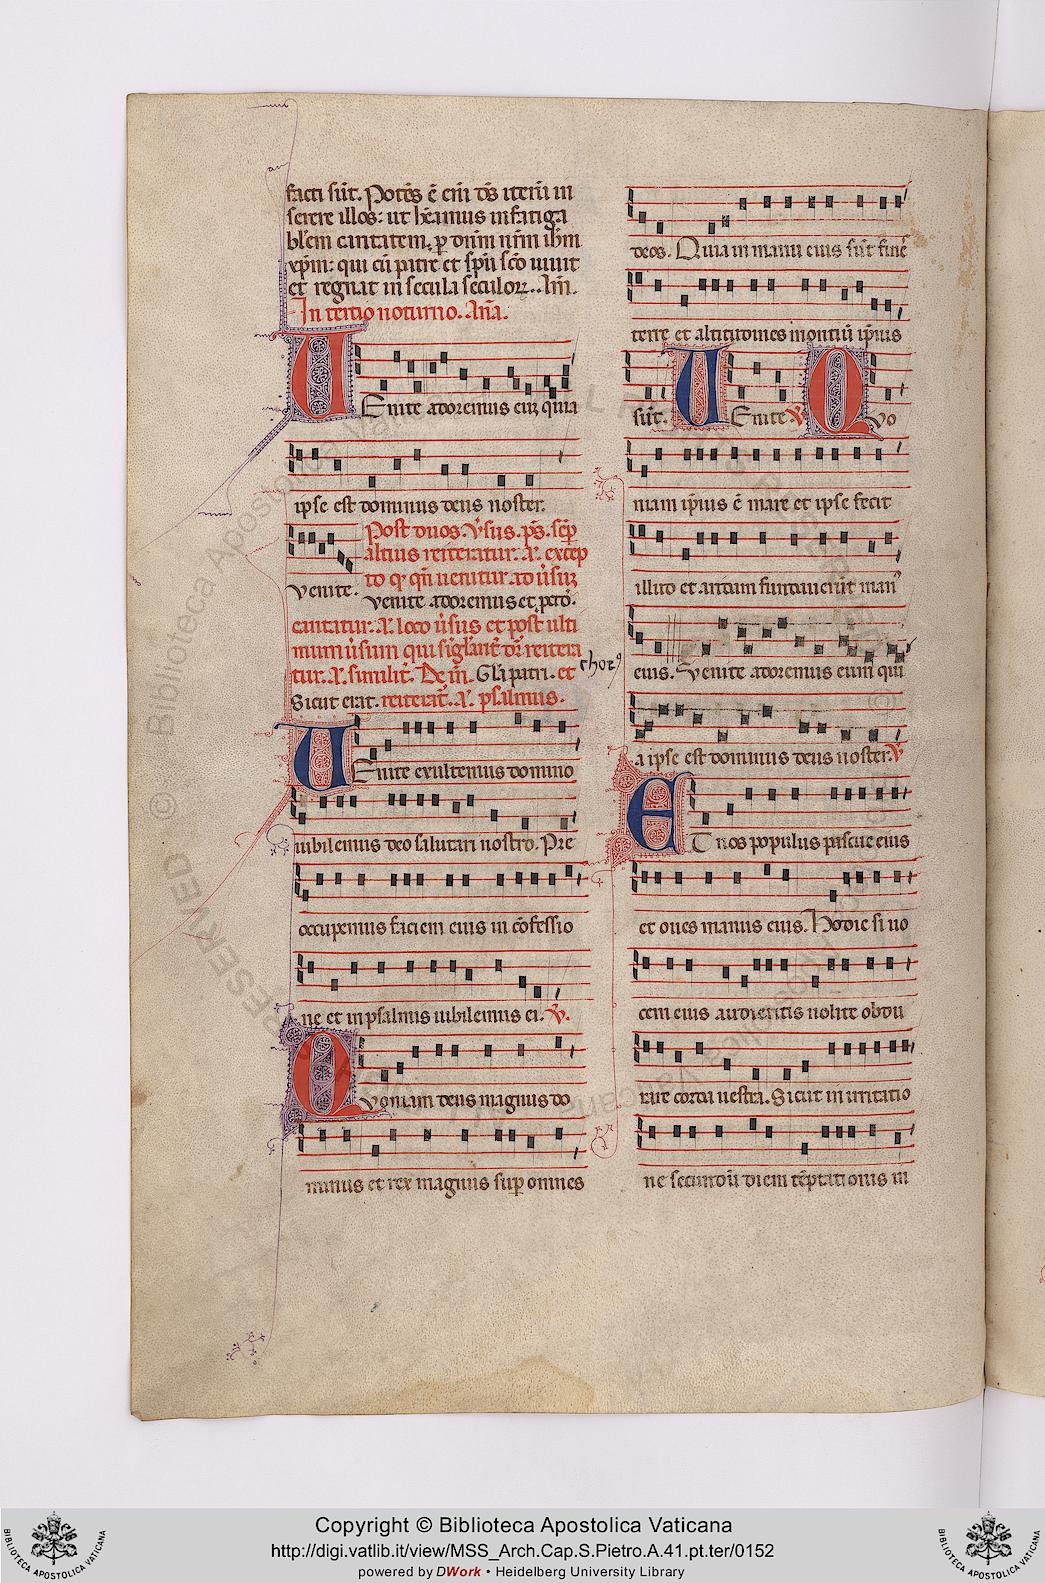 facti sūt. Potēs ē eīm dūs iterū in
serere illos: ut hēamus infatiga
blem caritatem. p dnm nrm ihm
xpm: qui cū patre et spū scō uiuit
et regnat in secula seculor. Am.
In tertio noturno. Aña.
Uenite adoremus eū quia
ipse est dominus deus noster.
Post duos. v̄sus. ps. semp
altius reiteratur. a. excep
venite.
to q qn uenitur ad v̄suz
venite adoremus et pcid.
cantatur. a. loco v̄sus et post ulti
mum v̄sum qui
tur. a. similit. De in. Gla patri. et
chor9
Sicut erat. reiterat. a. psalmus.
Uenite exultemus domino
iubilemus deo salutari nostro. Pre
occupemus faciem eius in cōfessio
ne et in psalmis iubilemus ei. v̄.
Quoniam deus magnus do
minus et rex magnus sup omnes
deos. Quia in manu eius sūt fines
terre et altitudines montiū ipsius
sūt. Uenite. v̄ Quo
niam ipsius ē mare et ipse fecit
illud et aridam fundauerūt man9
eius. Venite adoremus eum qui
a ipse est dominus deus noster. v̄
Et nos populus pascue eius
et oues manus eius. Hodie si uo
cem eius audieritis nolite obdu
rare corda uestra. Sicut in irritatio
ne secundū diem tēptationis in
BIBLIOTECA APOSTOLICA VATICANA
Copyright © Biblioteca Apostolica Vaticana
http://digi.vatlib.it/view/MSS_Arch.Cap.S.Pietro.A.41.pt.ter/0152
powered by DWork • Heidelberg University Library
BIBLIOTECA APOSTOLICA VATICANA